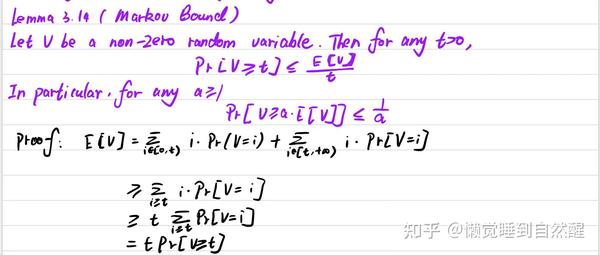 Lemma 3.14 (Markov Bound)
Let V be a non-zero random variable. Then for any t>0,
Pr[V≥t] ≤ E[V]/t
In particular, for any a≥1
Pr[V≥a·E[V]] ≤ 1/a
Proof: E[V] = Σ_{i∈[0,t)} i·Pr(V=i) + Σ_{i∈[t,+∞)} i·Pr[V=i]
≥ Σ_{i≥t} i·Pr[V=i]
≥ t Σ_{i≥t} Pr[V=i]
= t Pr[V≥t]
知乎 @懒觉睡到自然醒